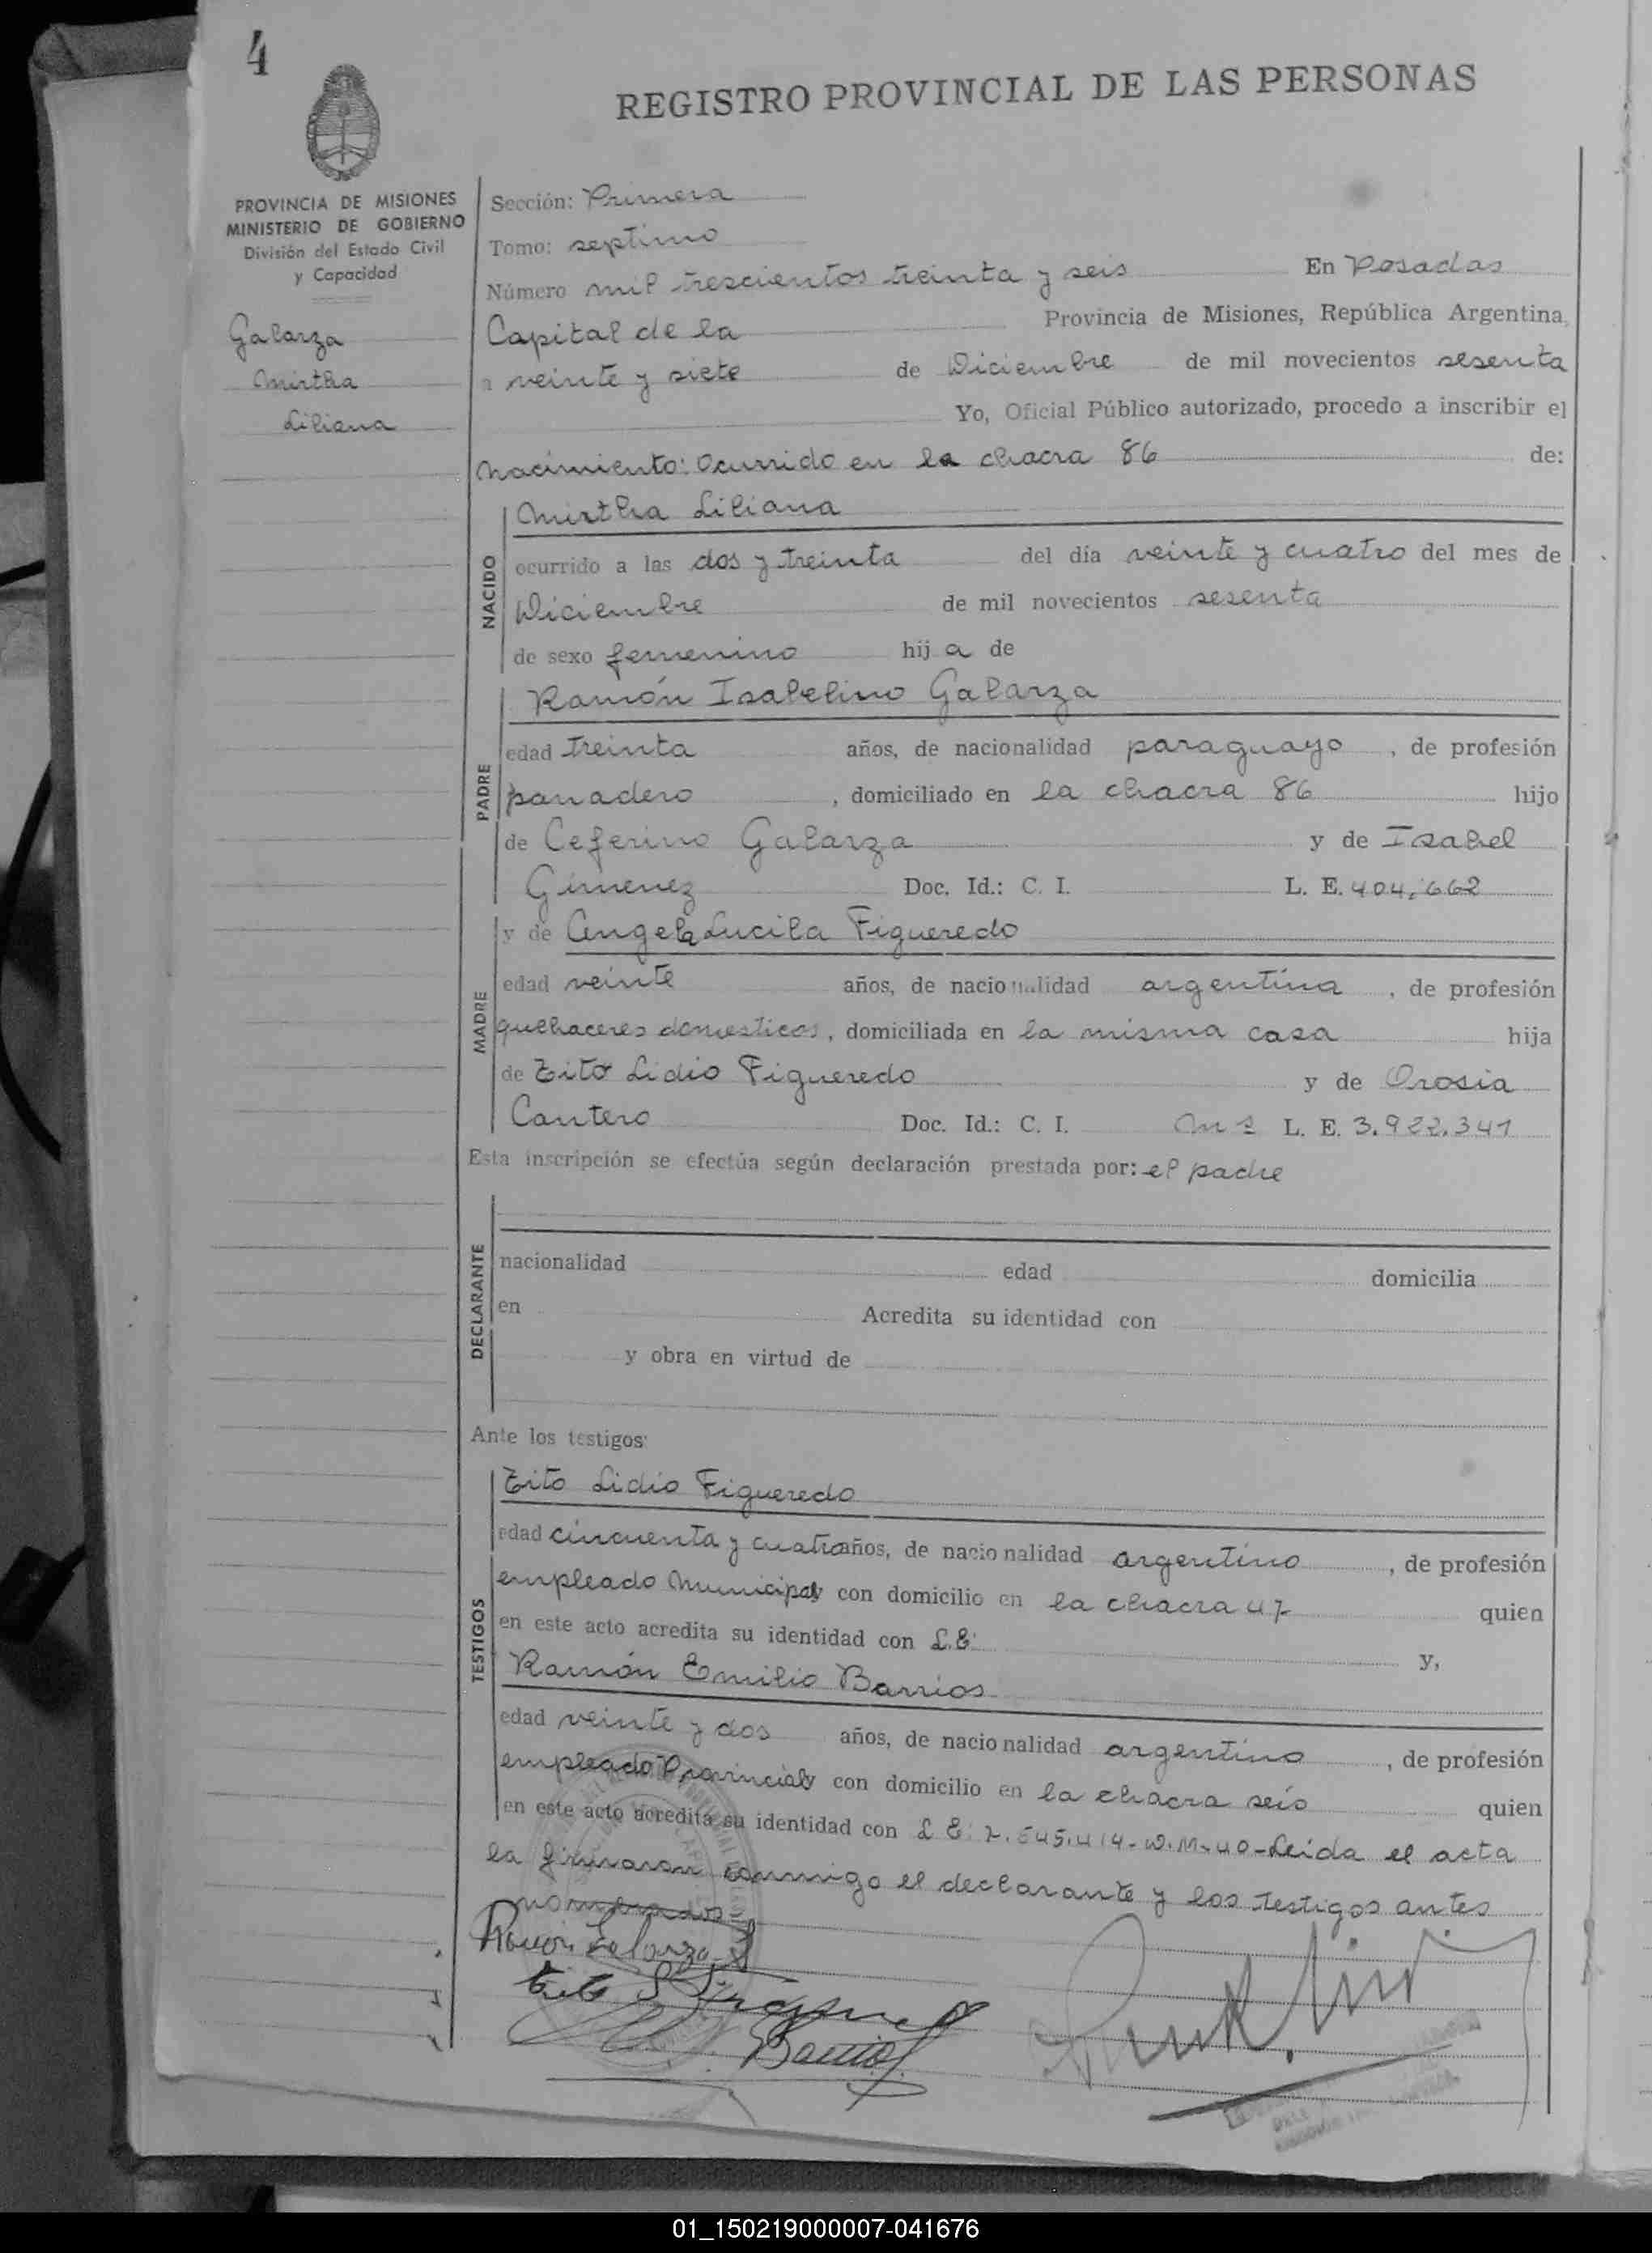 4
REGISTRO PROVINCIAL DE LAS PERSONAS
PROVINCIA DE MISIONES
MINISTERIO DE GOBIERNO
División del Estado Civil
y Capacidad
Galarza
Mirtha
Liliana
Sección: Primera
Tomo: septimo
Número mil trescientos treinta y seis En Posadas
Capital de la Provincia de Misiones, República Argentina,
a veinte y siete de Diciembre de mil novecientos sesenta
Yo, Oficial Público autorizado, procedo a inscribir el
nacimiento: ocurrido en la chacra 86 de:
NACIDO
Mirtha Liliana
ocurrido a las dos y treinta del día veinte y cuatro del mes de
Diciembre de mil novecientos sesenta
de sexo femenino hij a de
PADRE
Ramón Isabelino Galarza
edad treinta años, de nacionalidad paraguayo, de profesión
panadero, domiciliado en la chacra 86 hijo
de Ceferino Galarza y de Isabel
Gimenez Doc. Id.: C. I. L. E. 404.662
MADRE
y de Angela Lucila Figueredo
edad veinte años, de nacionalidad argentina, de profesión
quehaceres domesticos, domiciliada en la misma casa hija
de Tito Lidio Figueredo y de Orosia
Cantero Doc. Id.: C. I. L. E. 3.922.341
Esta inscripción se efectúa según declaración prestada por: el padre
DECLARANTE
nacionalidad edad domicilia
en Acredita su identidad con
y obra en virtud de
Ante los testigos:
TESTIGOS
Tito Lidio Figueredo
edad cincuenta y cuatro años, de nacionalidad argentino, de profesión
empleado Municipal con domicilio en la chacra 47 quien
en este acto acredita su identidad con L.E: y,
Ramón Emilio Barrios
edad veinte y dos años, de nacionalidad argentino, de profesión
empleado Provincial con domicilio en la chacra seis quien
en este acto acredita su identidad con L E: 7.545.414-D.M-40-Leida el acta
la firmaron conmigo el declarante y los testigos antes
nombrados=
Ramon Galarza
Tito
Barrios
01_150219000007-041676